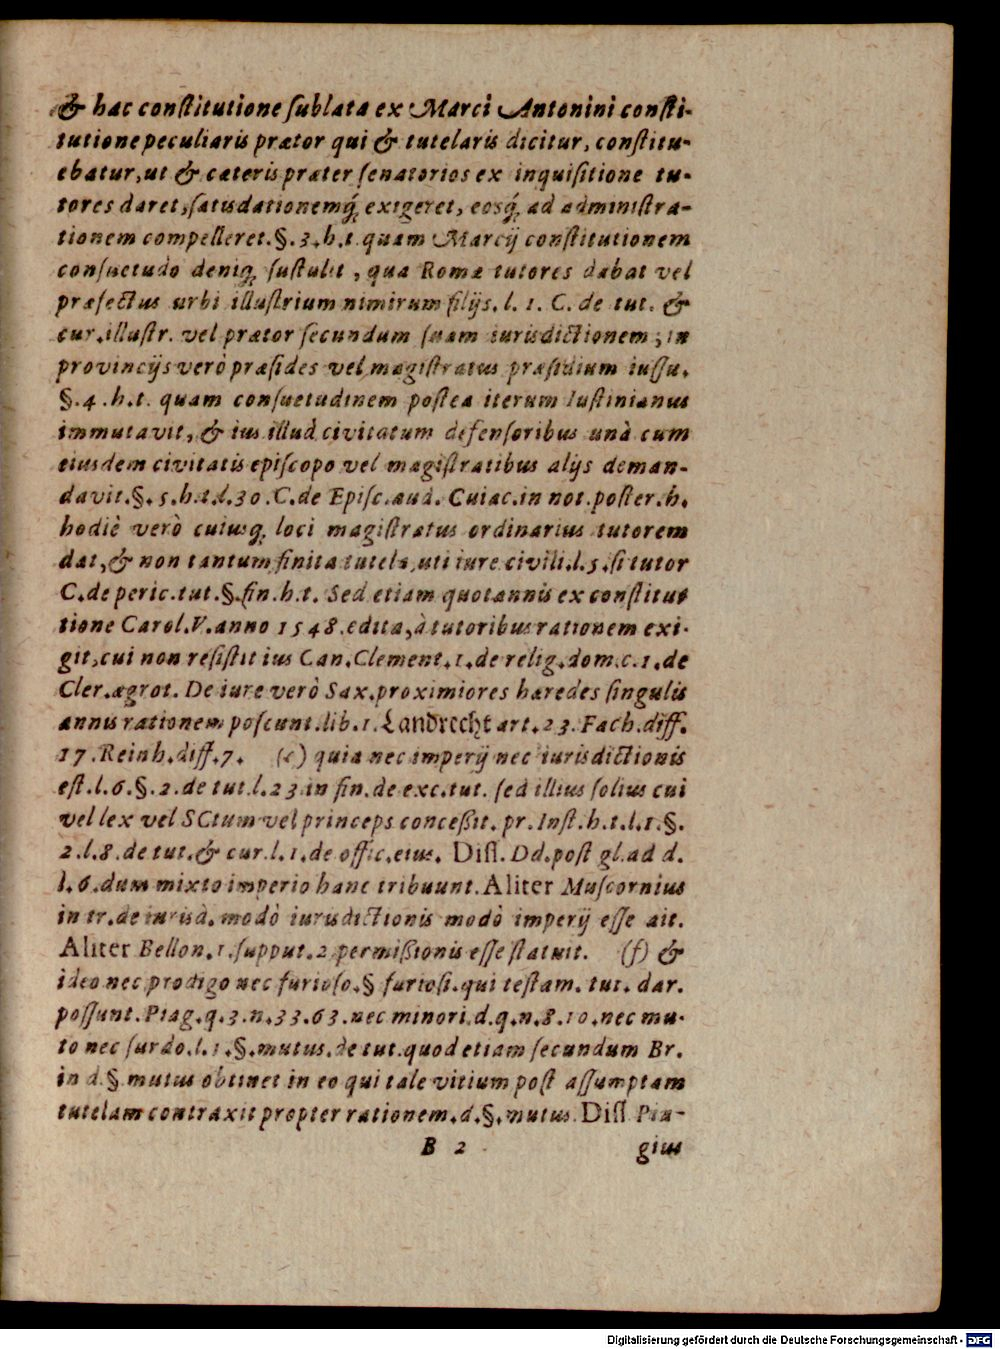 & hac constitutione sublata ex Marci Antonini consti-
tutione peculiaris prætor qui & tutelaris dicitur, constitu-
ebatur, ut & cæteris præter senatorios ex inquisitione tu-
tores daret, satisdationemq́; exigeret, eosq́; ad administra-
tionem compelleret. §. 3. h. t. quam Marcij constitutionem
consuetudo deniq; sustulit, qua Romæ tutores dabat vel
præfectus urbi illustrium nimirum filijs. l. 1. C. de tut. &
cur. illustr. vel prætor secundum suam iurisdictionem, in
provincijs verò præsides vel magistratus præsidium iussu.
§. 4. h. t. quam consuetudinem postea iterum Iustinianus
immutavit, & ius illud civitatum defensoribus unà cum
eiusdem civitatis episcopo vel magistratibus alijs deman-
davit. §. 5. h. t. l. 30. C. de Episc. aud. Cuiac. in not. poster. h.
hodiè verò cuiusq; loci magistratus ordinarius tutorem
dat, & non tantum finita tutela, uti iure civili. l. 5. si tutor
C. de peric. tut. §. fin. h. t. Sed etiam quotannis ex constitu-
tione Carol. V. anno 1548. edita, à tutoribus rationem exi-
git, cui non resistit ius Can. Clement. 1. de relig. dom. c. 1. de
Cler. ægrot. De iure verò Sax. proximiores hæredes singulis
annis rationem poscunt. lib. 1. Landrecht art. 23. Fach. diff.
17. Reinh. diff. 7. (e) quia nec imperij nec iurisdictionis
est. l. 6. §. 2. de tut. l. 23 in fin. de exc. tut. sed illius solius cui
vel lex vel SCtum vel princeps concessit. pr. Inst. h. t. l. 1. §.
2. l. 8. de tut. & cur. l. 1. de offic. eius. Diss. Dd. post gl. ad d.
l. 6. dum mixto imperio hanc tribuunt. Aliter Muscornius
in tr. de iurisd. modò iurisdictionis modò imperij esse ait.
Aliter Bellon. 1. supput. 2. permissionis esse statuit. (f) &
ideo nec prodigo nec furioso. § furiosi. qui testam. tut. dar.
possunt. Piag. q. 3. n. 33. 63. nec minori. d. q. n. 8. 10. nec mu-
to nec surdo. l. 1. §. mutus. de tut. quod etiam secundum Br.
in d. §. mutus obtinet in eo qui tale vitium post assumptam
tutelam contraxit propter rationem. d. §. mutus. Diss. Pia-
B 2 gius
Digitalisierung gefördert durch die Deutsche Forschungsgemeinschaft - DFG